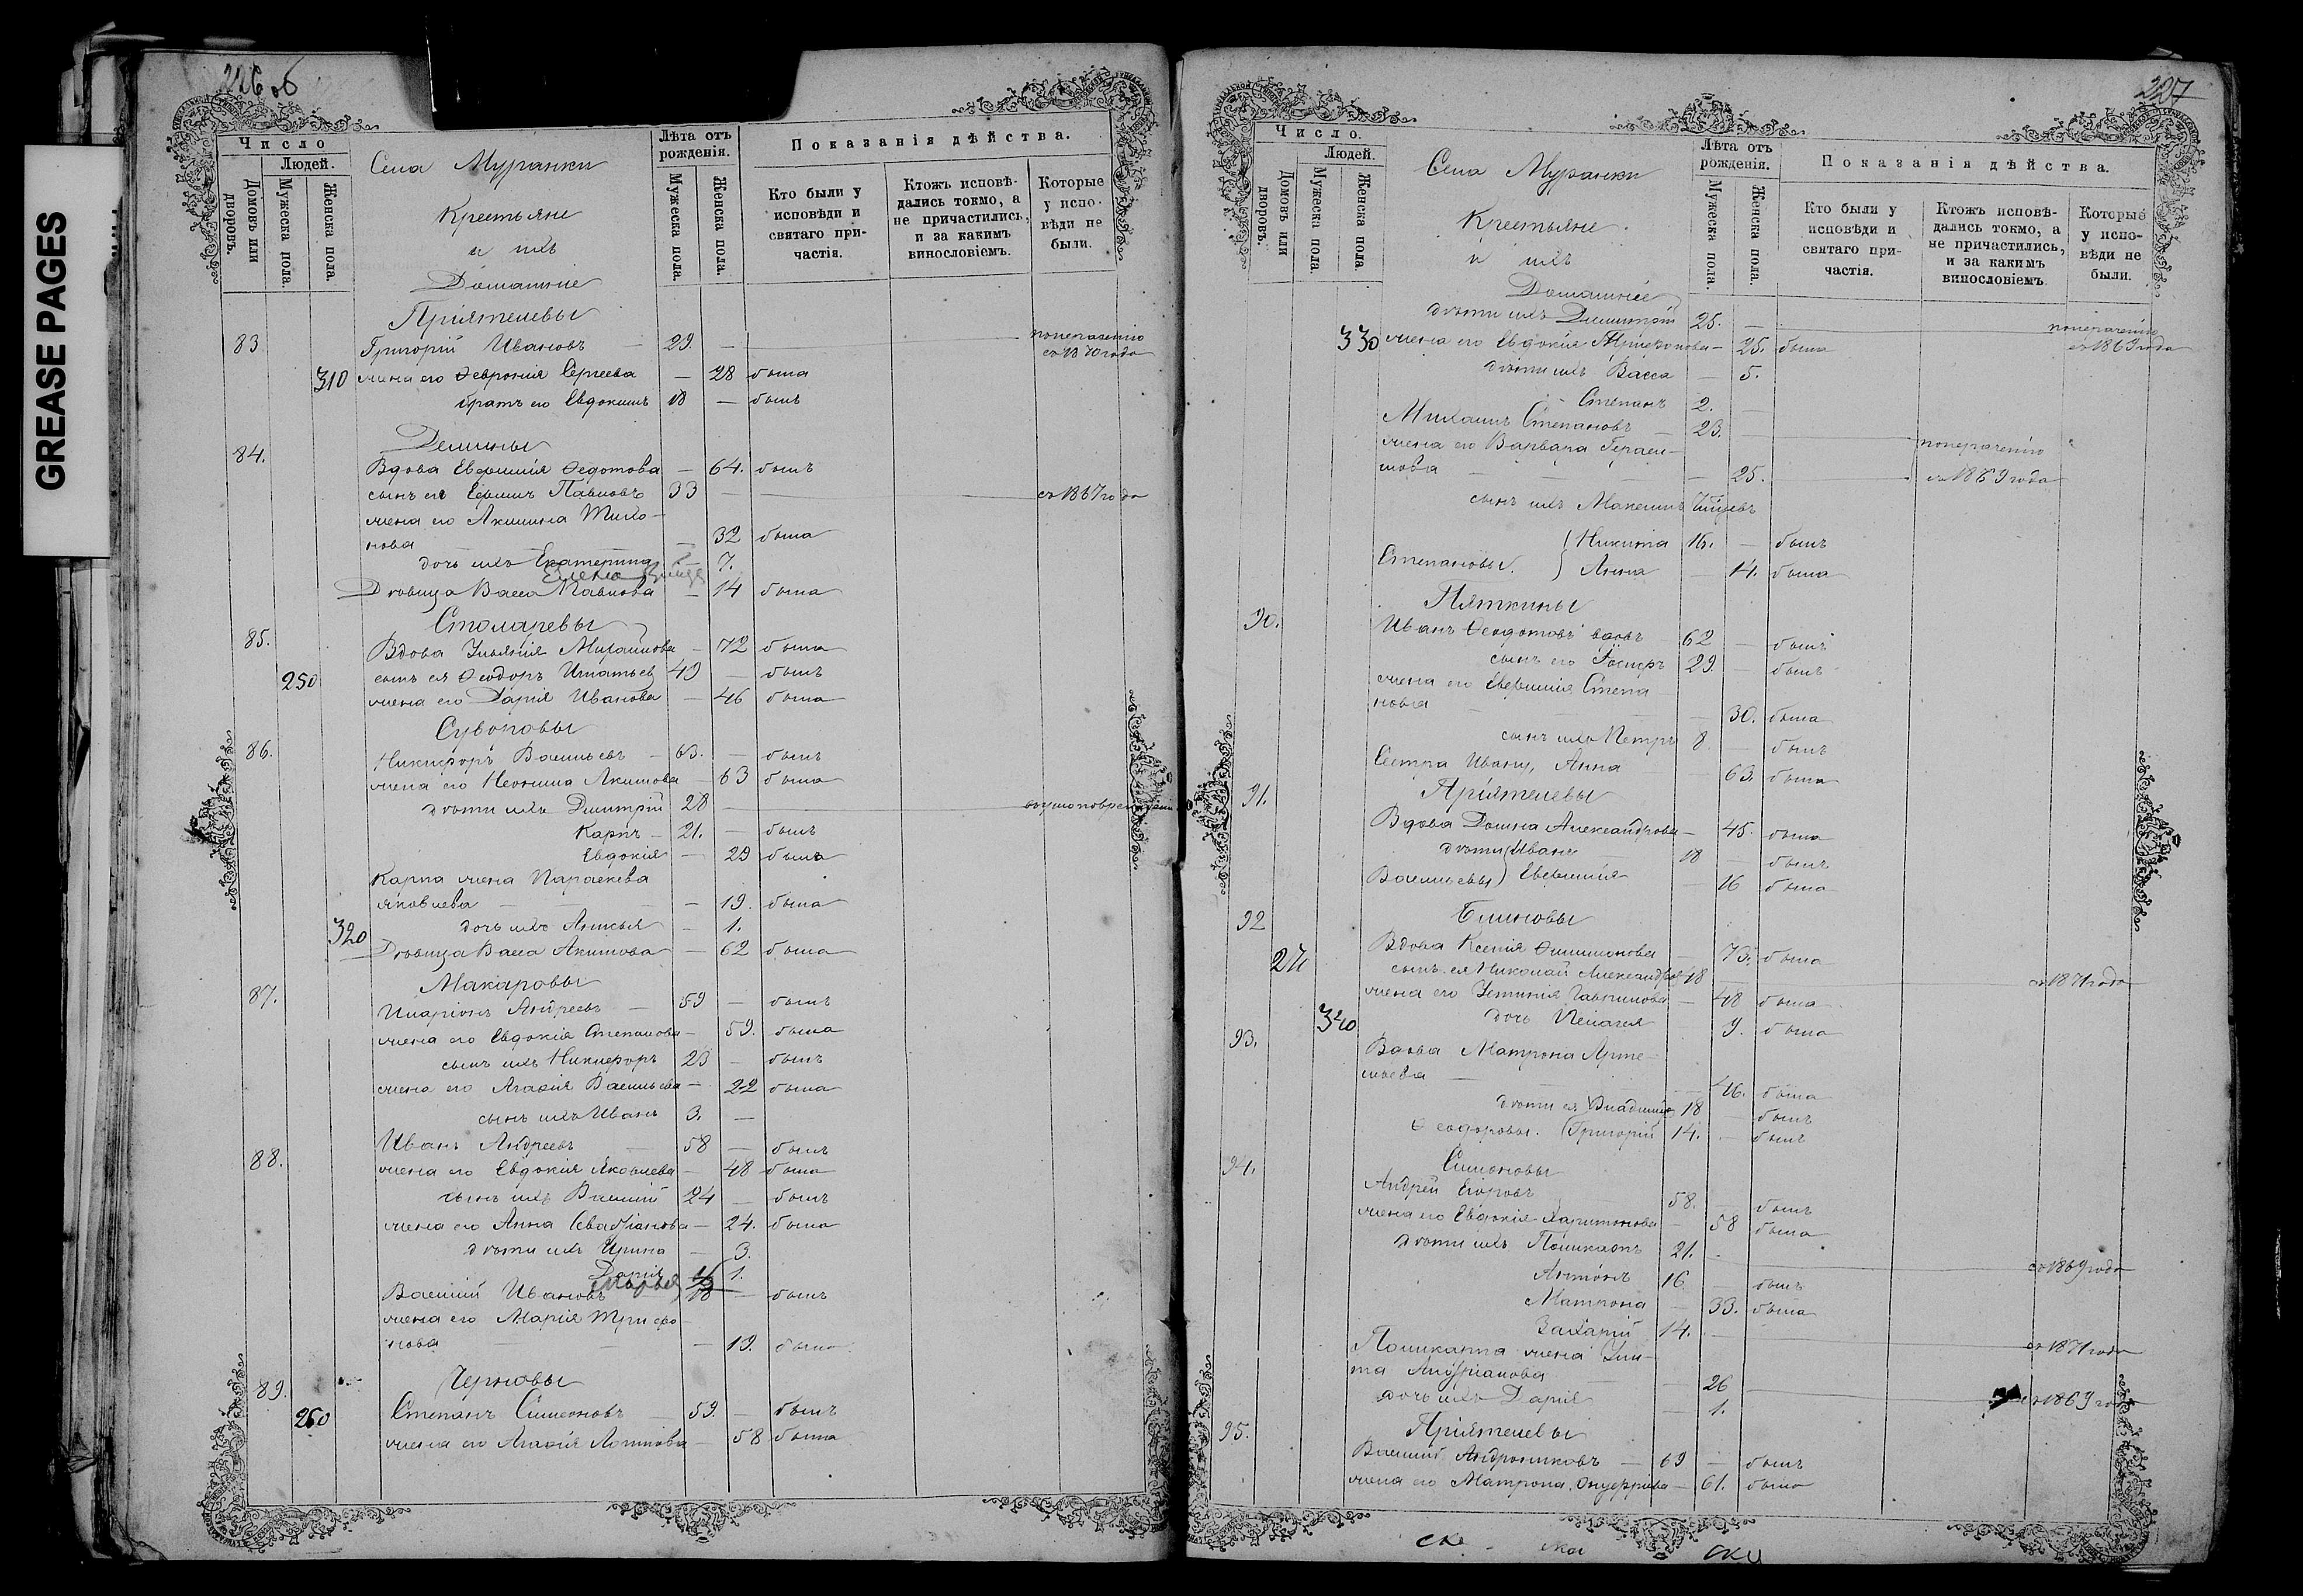 GREASE PAGES
226 об
Число
Людей.
Домовъ или дворовъ.
Мужеска пола.
Женска пола.
Села Муранки
Крестьяне
и ихъ
Домашніе
Лѣта отъ рожденія.
Мужеска пола.
Женска пола.
Показанія дѣйства.
Кто были у исповѣди и святаго при-частія.
Ктожъ исповѣ-дались токмо, а не причастились, и за какимъ винословіемъ.
Которые у испо-вѣди не были.
Пріятелевы
83 Григорій Ивановъ 29 — понераченію съ 1870 года
310 жена его Ѳевронія Сергеева — 28 была
братъ его Евдокимъ 18 — былъ
Демины
84. Вдова Евфимія Ѳедотова — 64. былъ
сынъ ея Ефимъ Павловъ 33 — съ 1867 года
жена его Акилина Тихо-
нова — 32 была
дочь ихъ Екатерина — 7.
Дѣвица Васса Павлова — 14 была
Столяревы
85. Вдова Ульянія Михайлова — 72 была
250 сынъ ея Ѳеодоръ Игнатьев 49 — былъ
жена его Дарія Иванова — 46 была
Суворовы
86. Никифоръ Васильевъ — 63. — былъ
жена его Неонила Акимова — 63 была
дѣти ихъ Димитрій 28 —
Карпъ — 21. — былъ
Евдокія — 29 была
Карпа жена Параскева
Яковлева — 19. была
320 дочь ихъ Анисья — 1.
Дѣвица Васса Акимова — 62 была
Макаровы
87. Иларіонъ Андреевъ — 59 — былъ
жена его Евдокія Степанова — 59. была
сынъ ихъ Никифоръ 23 — былъ
жена его Агафія Васильева — 22 была
сынъ ихъ Иванъ 3. —
88. Иванъ Андреевъ — 58 — былъ
жена его Евдокія Яковлева — 48 была
сынъ ихъ Василій 24 — былъ
жена его Анна Севастіанова — 24. была
дѣти ихъ Ирина — 3.
Дарія 1.
Марья
Василій Ивановъ 18 — былъ
жена его Марія Трифо-
нова — 19. была
Черновы
89. 260 Степанъ Симеоновъ 59. — былъ
жена его Агафія Логинова — 58 была
227
Число.
Людей.
Домовъ или дворовъ.
Мужеска пола.
Женска пола.
Села Муранки
Крестьяне
и ихъ
Домашніе
Лѣта отъ рожденія.
Мужеска пола.
Женска пола.
Показанія дѣйства.
Кто были у исповѣди и святаго при-частія.
Ктожъ исповѣ-дались токмо, а не причастились, и за какимъ винословіемъ
Которые у испо-вѣди не были.
дѣти ихъ Димитрій 25. — понераченію съ 1869 года
330 жена его Евдокія — 25. была
дѣти ихъ Васса — 5.
Степанъ 2. —
Михаилъ Степановъ — 23. —
жена его Варвара Гераси-
мова — 25. понераченію съ 1869 года
сынъ ихъ Максимъ
Степановы. Никита 16. — былъ
Анна — 14. была
Пяткины
90. Иванъ Ѳеодотовъ вдовъ 62 — былъ
сынъ его 29. — былъ
жена его Евфимія Степа
нова — 30. была
сынъ ихъ Петръ 8. — былъ
Сестра Ивану, Анна — 63. была
Пріятелевы
91. Вдова Домна Александрова — 45. была
дѣти Иванъ 18 — былъ
Васильевы Евфимія — 16 была
Блиновы
92 Вдова Ксенія Филимонова — 73. была
271 сынъ ея Николай Александров 48 съ 1871 года
жена его Устинія Гаврилова — 48 была
340 дочь Пелагея 9. была
93. Вдова Матрона Арте-
мьева — 46. была
дѣти ея Владимір 18 — былъ
Ѳеодоровы. Григорій 14. — былъ
Симоновы
94. Андрей Егоровъ 58. — былъ
жена его Евдокія Харитонова — 58 была
дѣти ихъ Поликарпъ 21. съ 1869 года
Антонъ 16 — былъ
Матрона — 33. была
Захарій 14. — съ 1871 года
Поликарпа жена Ули-
та Андріанова — 26
дочь ихъ Дарія — 1. съ 1869 года
Пріятелевы
95. Василій Андрониковъ — 69 — былъ
жена его Матрона Онуфріева — 61. была